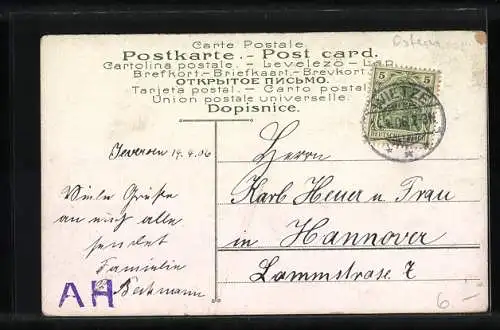 Ostern
Carte Postale.
Postkarte. - Post card.
Cartolina postale. - Levelező - Lap.
Brefkort. - Briefkaart. - Brevkort.
ОТКРЫТОЕ ПИСЬМО.
Tarjeta postal. - Carto postal
Union postale universelle.
Dopisnice.
5 5
WIETZE
DEUTSCHES
Jeversen 14.4.06
Viele Grüße
an euch alle
sendet
Familie
Beckmann
AH
Herrn
Karl Heuer u Frau
in Hannover
Lammstrasse 7
6.-